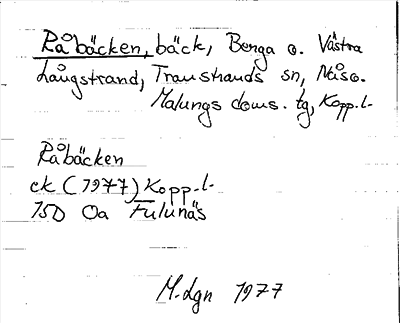 Råbäcken, bäck, Benga o. Västra
Långstrand, Transtrands sn, Nås o.
Malungs doms. tg, Kopp. l.
Råbäcken
ek (1977) Kopp. l.
15D 0a Fulunäs
M. Lgn 1977